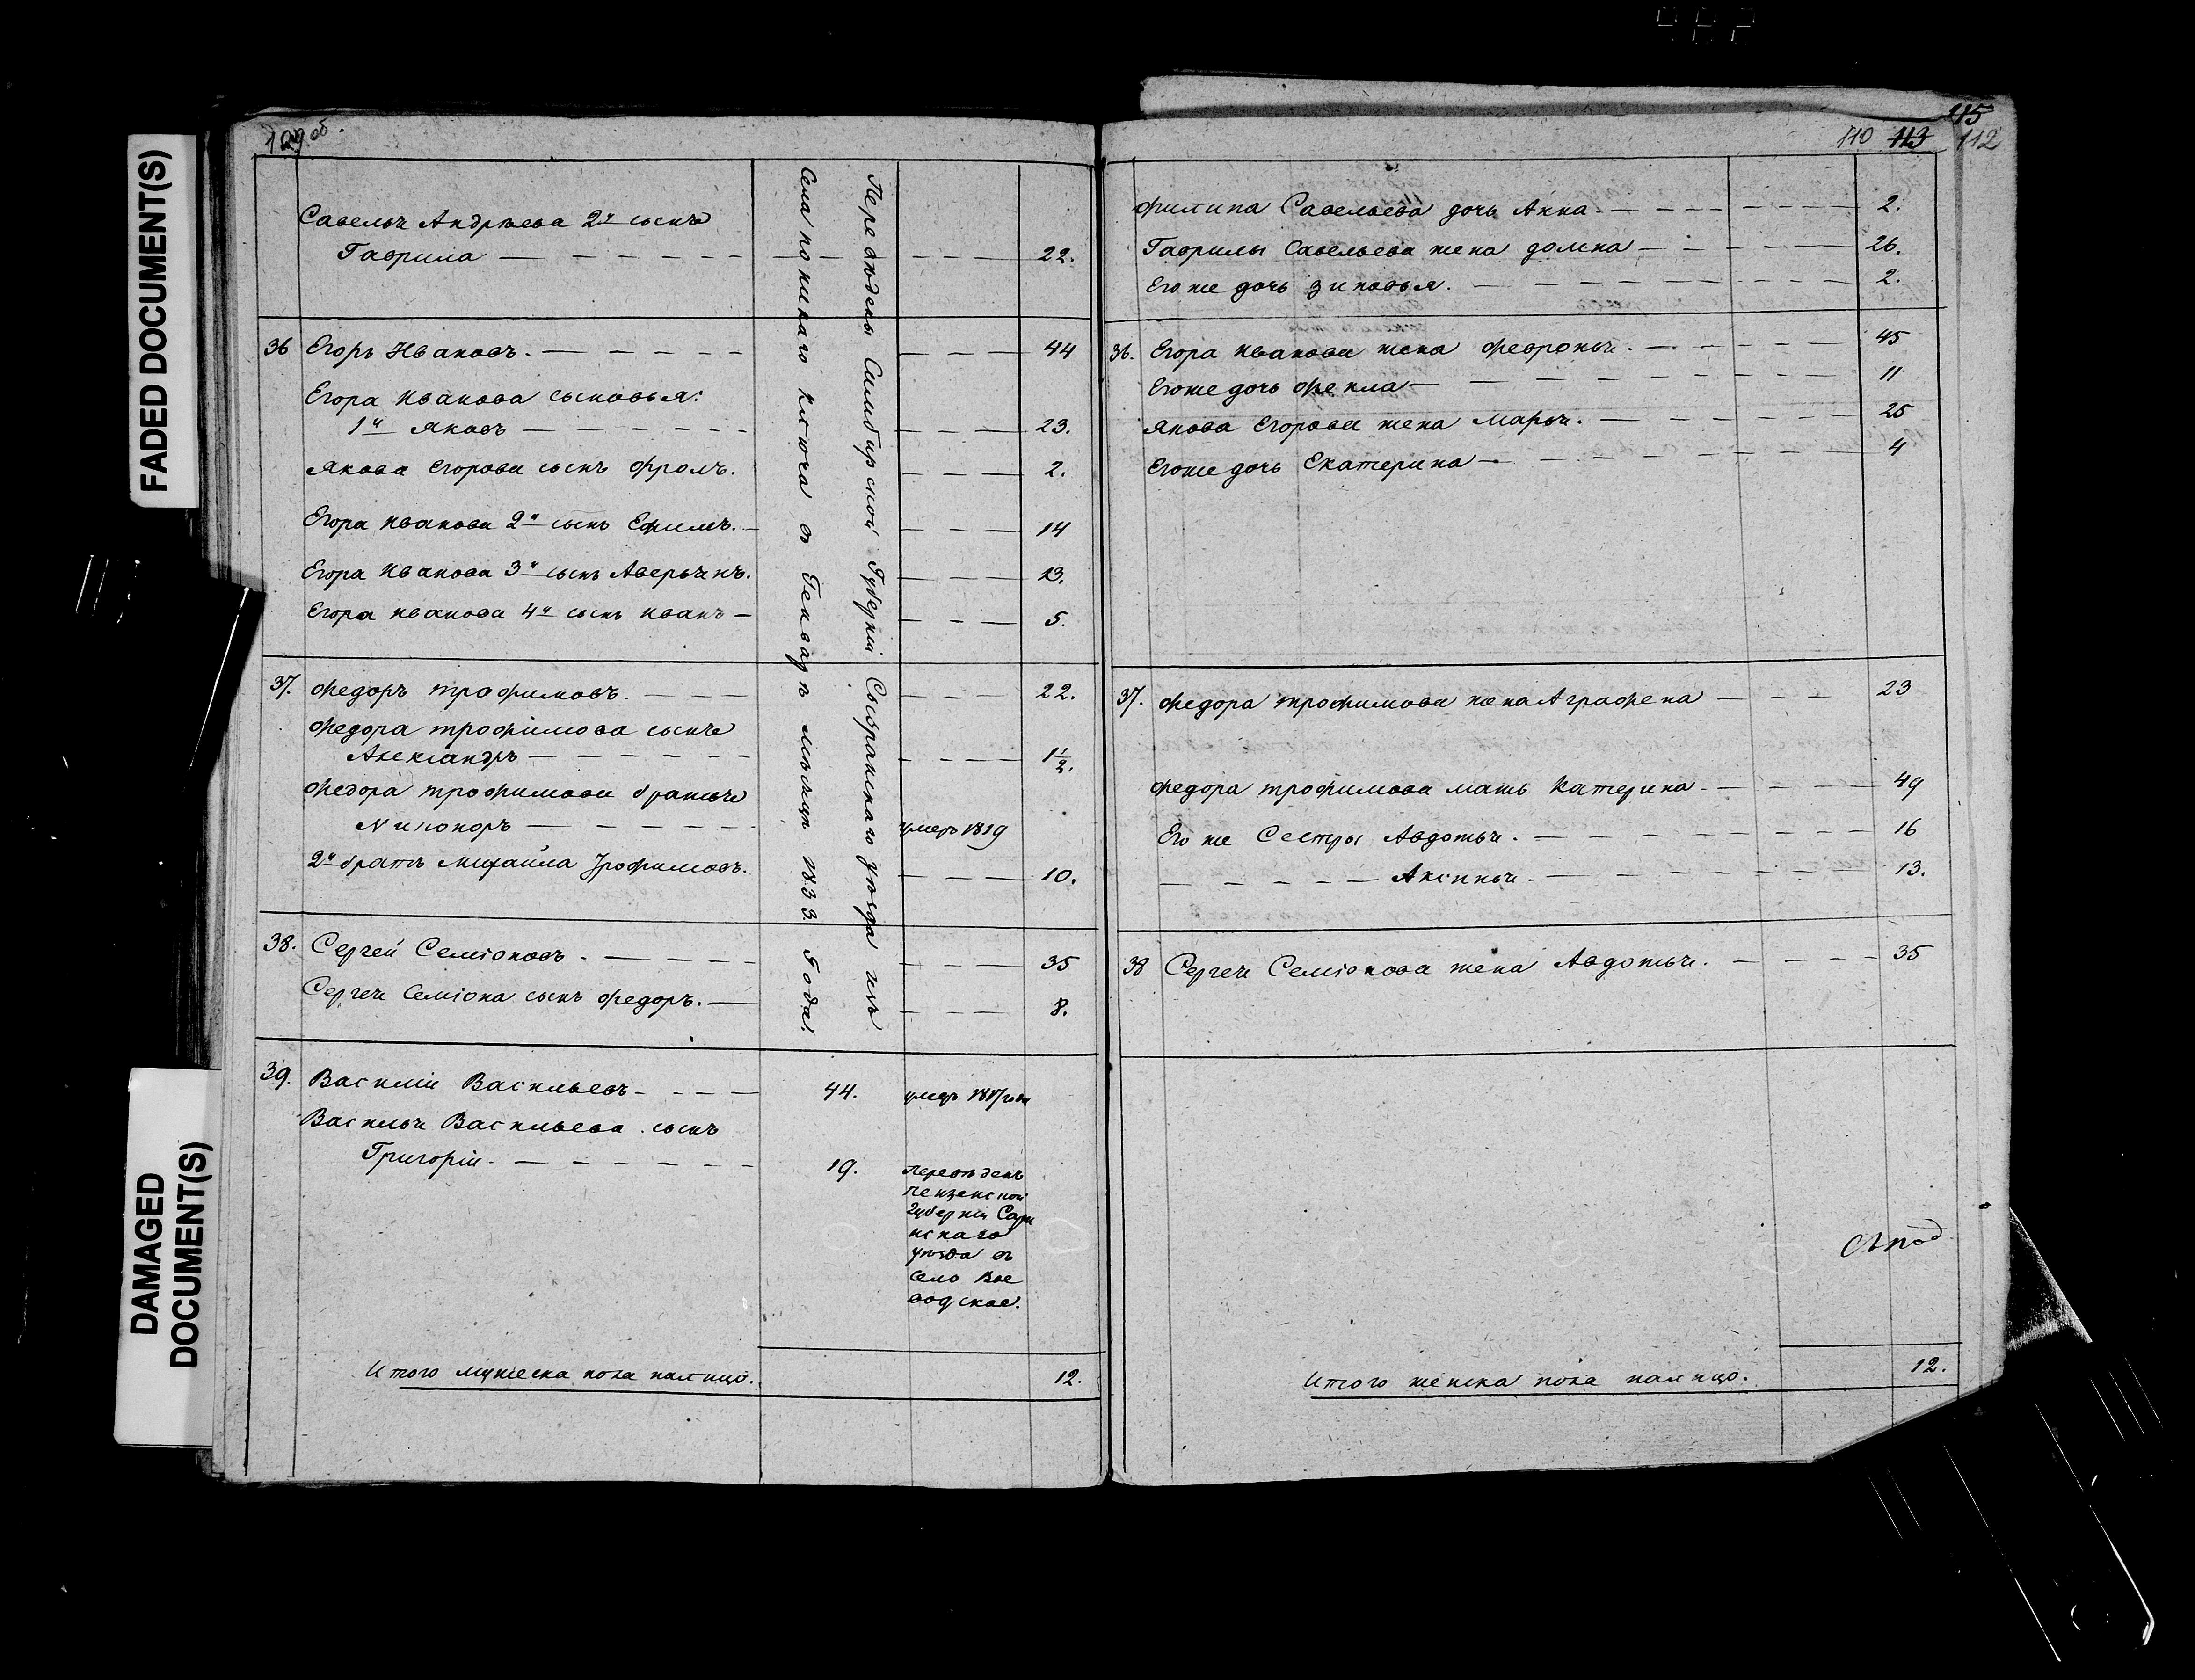 FADED DOCUMENT(S)
DAMAGED
DOCUMENT(S)
об.
Савелья Андрѣева 2й сынъ
Гаврила — — — — — — — — — — — 22.
36 Егоръ Ивановъ. — — — — — — — — 44
Егора Иванова сыновья:
1й Яковъ — — — — — — — — — 23.
Якова Егорова сынъ Фролъ. — — — 2.
Егора Иванова 2й сынъ Ефимъ. — — — — 14
Егора Иванова 3й сынъ Аверьянъ. — — — 13.
Егора Иванова 4й сынъ Иванъ — — — — 5.
37. Федоръ Трофимовъ. — — — — — — 22.
Федора Трофимова сынъ
Александръ — — — — — — — — — — 1½.
Федора Трофимова братья
Никоноръ — — — — — умеръ 1819
2й братъ Михайла Трофимовъ. — — — 10.
38. Сергей Семіоновъ. — — — — — — — 35
Сергея Семіона сынъ Федоръ. — — — — 8.
Переведены Симбирской Губерніи Сызранскаго уѣзда изъ
Села поникаго ключа в Генварѣ мѣсяцѣ 1833. Года.
39. Василій Васильевъ — — — — 44. умеръ 1817 года
Василья Васильева сынъ
Григорій — — — — — — 19. переведенъ
пензенской
Губерніи Сара
нскаго
уѣзда въ
село Вое
водское.
Итого мужеска пола налицо. 12.
110 113 112
115
Филипа Савельева дочь Анна. — — — — — — — — 2.
Гаврилы Савельева жена Домна — — — — — 26.
Его же дочь Зиновья. — — — — — — — — — — 2.
36. Егора Иванова жена Февронья. — — — — — — 45
Его же дочь Фекла — — — — — — — — — — 11
Якова Егорова жена Марья. — — — — — — — 25
Его же дочь Екатерина — — — — — — — — — — 4
37. Федора Трофимова жена Аграфена — — — — 23
Федора Трофимова мать Катерина — — — — — 49
Его же Сестры Авдотья. — — — — — — — — — 16
— — — — — Аксинья — — — — — — — — — 13.
38 Сергея Семіонова жена Авдотья. — — — — — 35
Итого женска пола налицо. 12.